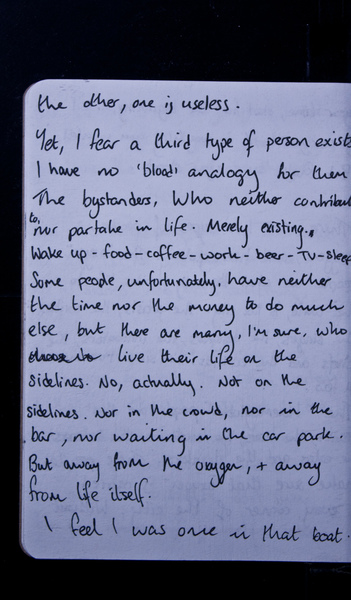 the other, one is useless.
Yet, I fear a third type of person exists
I have no 'blood' analogy for them
The bystanders, Who neither contribut
to, nor partake in life. Merely existing.
Wake up - food - coffee - work - beer - TV - sleep
Some people, unfortunately, have neither
the time nor the money to do much
else, but there are many, I'm sure, who
choose to live their life on the
sidelines. No, actually. Not on the
sidelines. Nor in the crowd, nor in the
bar, nor waiting in the car park.
But away from the oxygen, + away
from life itself.
I feel I was once in that boat.